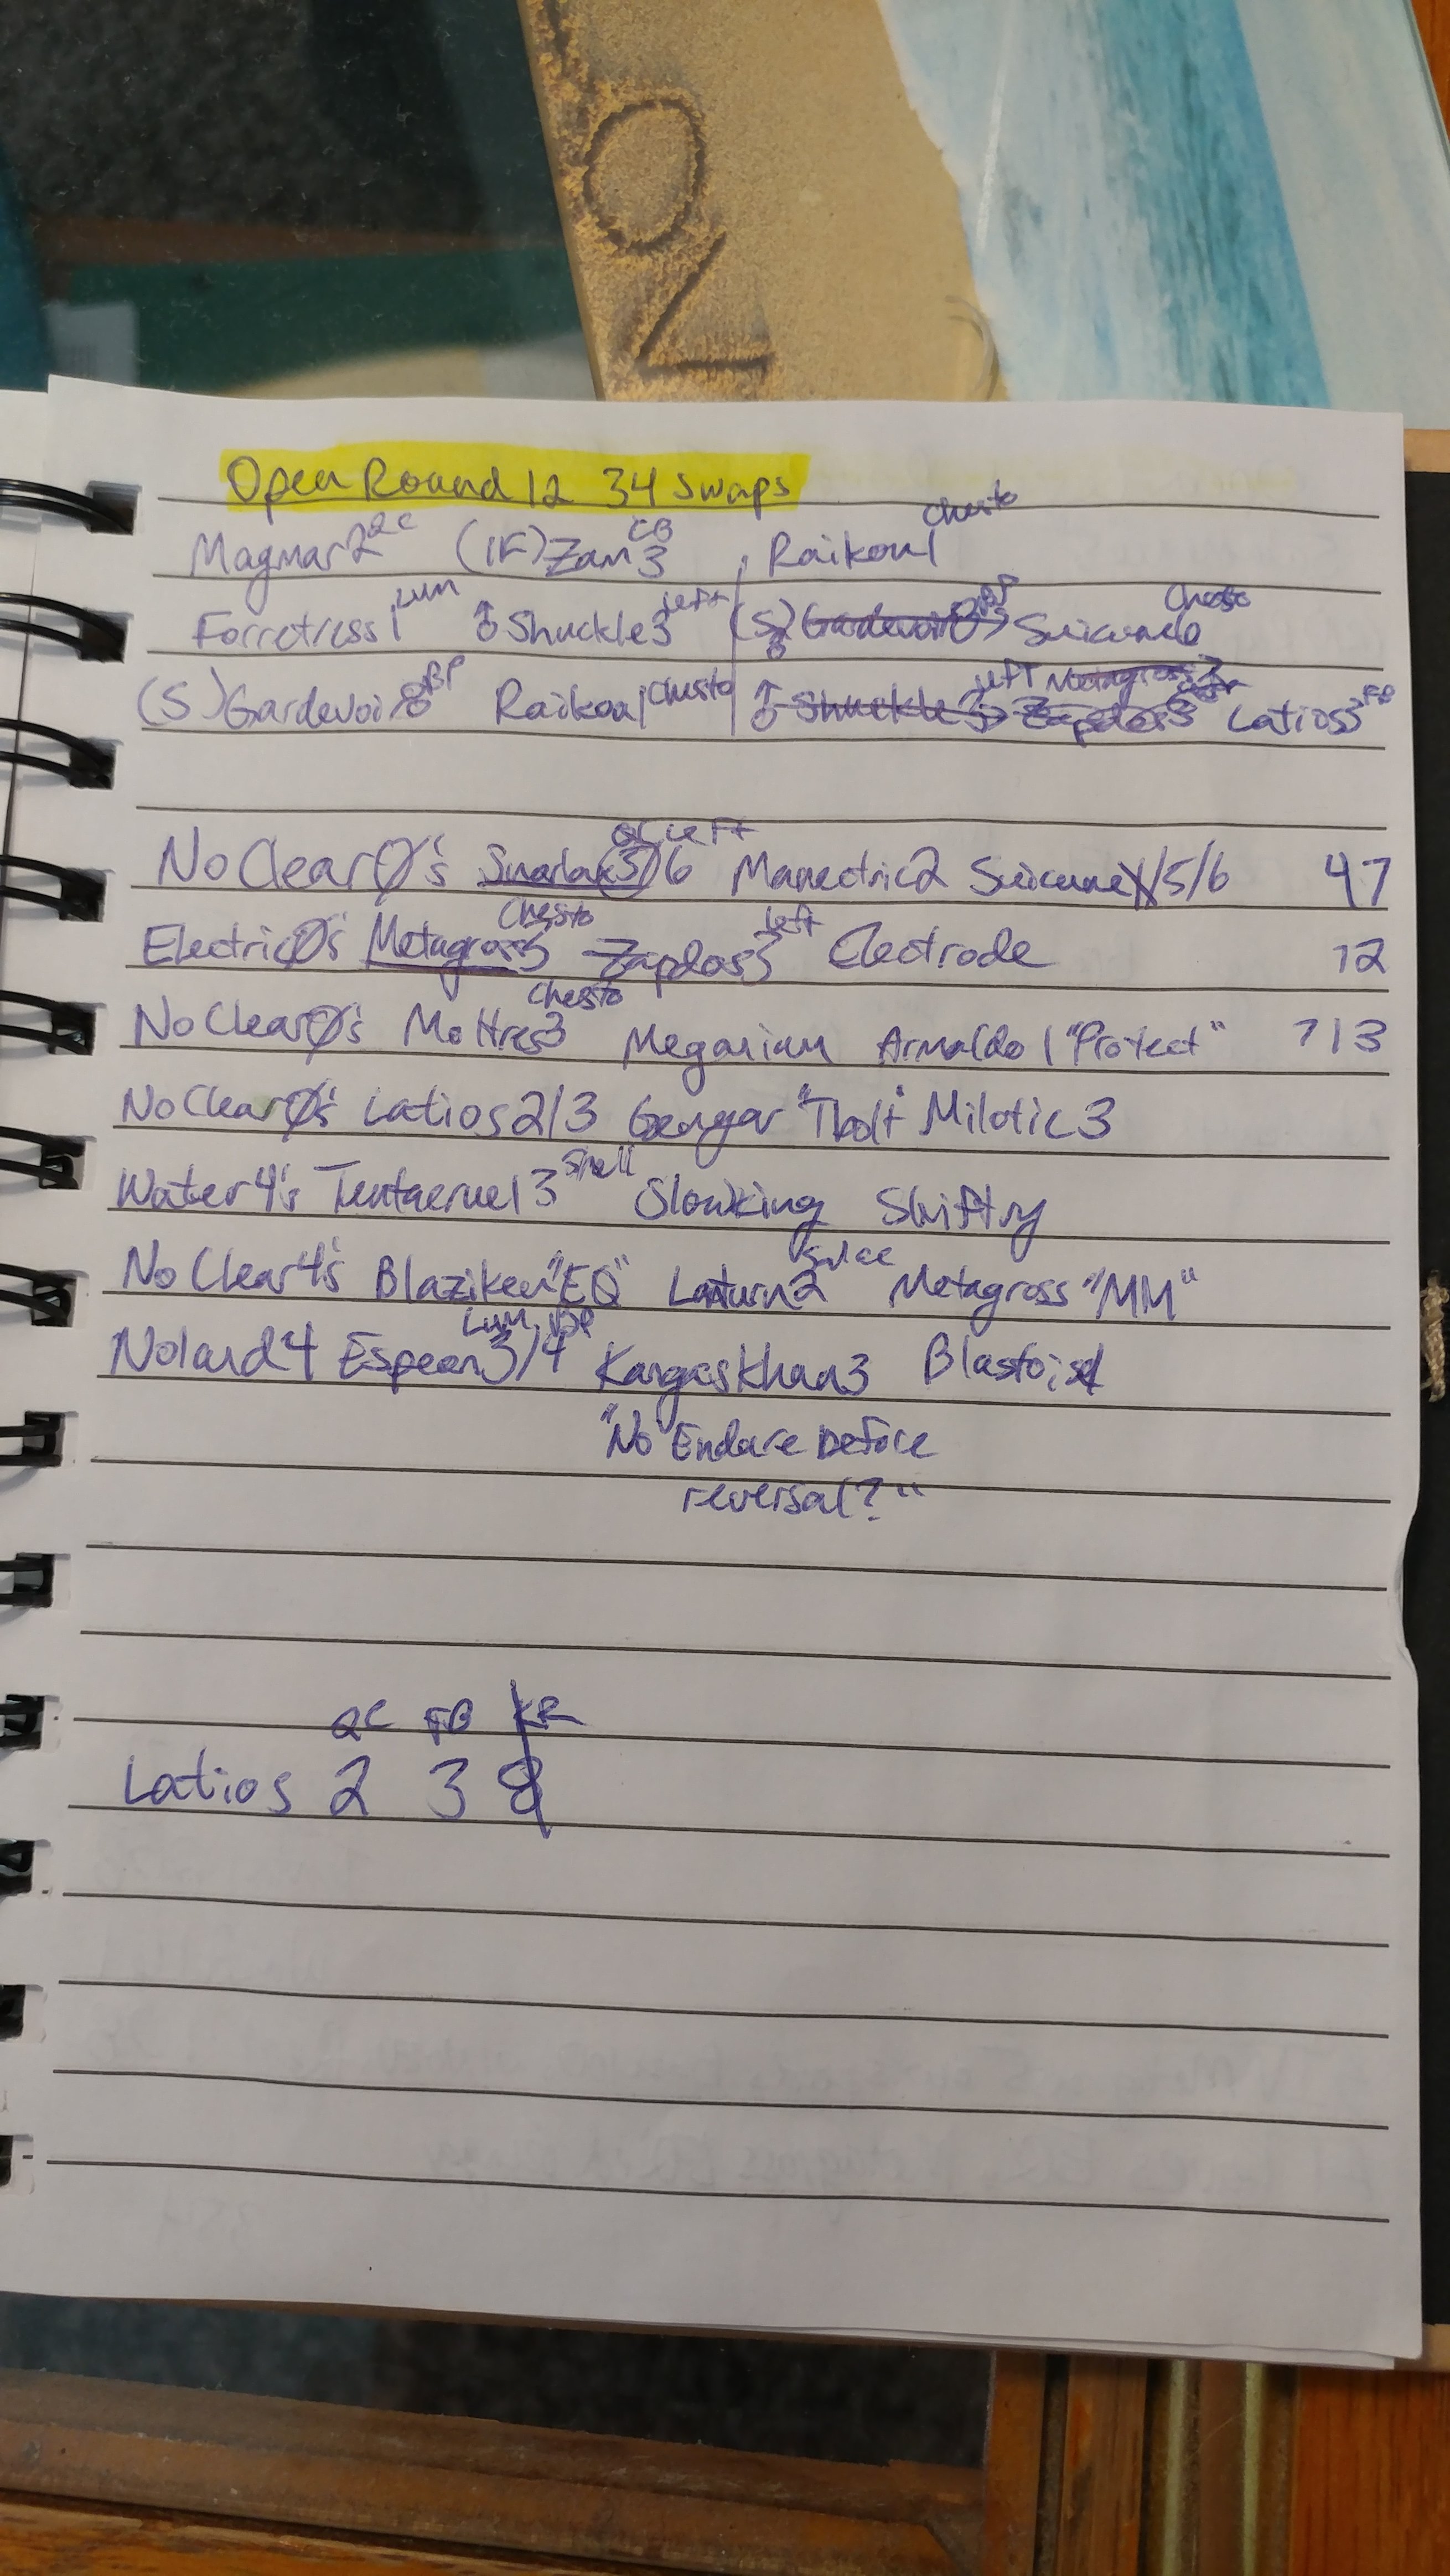 Open Round 12 34 swaps
Magmar2 QC (IF)Zan3 CB , Raikou1 Chesto
Forretress1 Lum ♂Shuckle3 Left (S)Gardevoir8 BP → Suicune6 Chesto
(S)Gardevoir8 BP Raikou1 Chesto ♂Shuckle3 Left → Zapdos3 Metagross Latios3 FB
No Clear 0's Snorlax(5)/6 QC Left Manectric2 Suicune /5/6 47
Electric 0's Metagross3 Chesto Zapdos3 Left Electrode 12
No Clear 0's Moltres3 Chesto Meganium Armaldo1 "Protect" 713
No Clear 0's Latios2/3 Gengar "Tbolt" Milotic3
Water 4's Tentacruel3 Shell Slowking Shiftry
No Clear 4's Blaziken "EQ" Lanturn2 Metagross "MM"
Noland4 Espeon3/4 Lum BP Kangaskhan3 Blastoise4
"No Endure before
reversal?"
QC FB KR
Latios 2 3 8